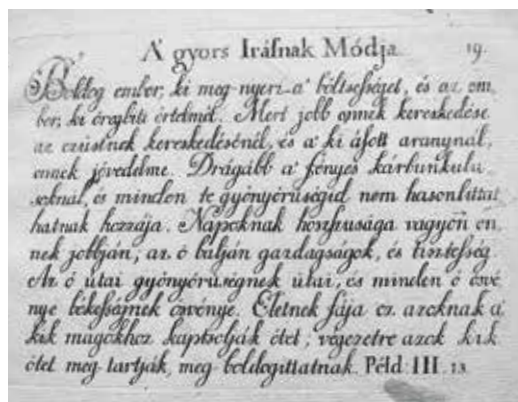 A' gyors Irásnak Módja. 19.
Boldog ember, ki meg-nyeri-a' böltsességet, és az em-
ber, ki öregbíti értelmét. Mert jobb ennek kereskedése
az ezüstnek kereskedésénél, és a' ki ásott aranynál,
ennek jövedelme. Drágább a' fényes kárbunkulu-
soknál, és minden te gyönyörüségid nem hasonlíttat-
hatnak hozzája. Napoknak hoszszusága vagyon en-
nek jobbján, az ő balján gazdagságok, és tisztesség.
Az ő útai gyönyörüségnek útai, és minden ő ösvé-
nye békességnek ösvénye. Életnek fája ez azoknak a'
kik magokhoz kaptsolják ötet; végezetre azok kik
ötet meg-tartják, meg-boldogíttatnak. Péld. III. 13.